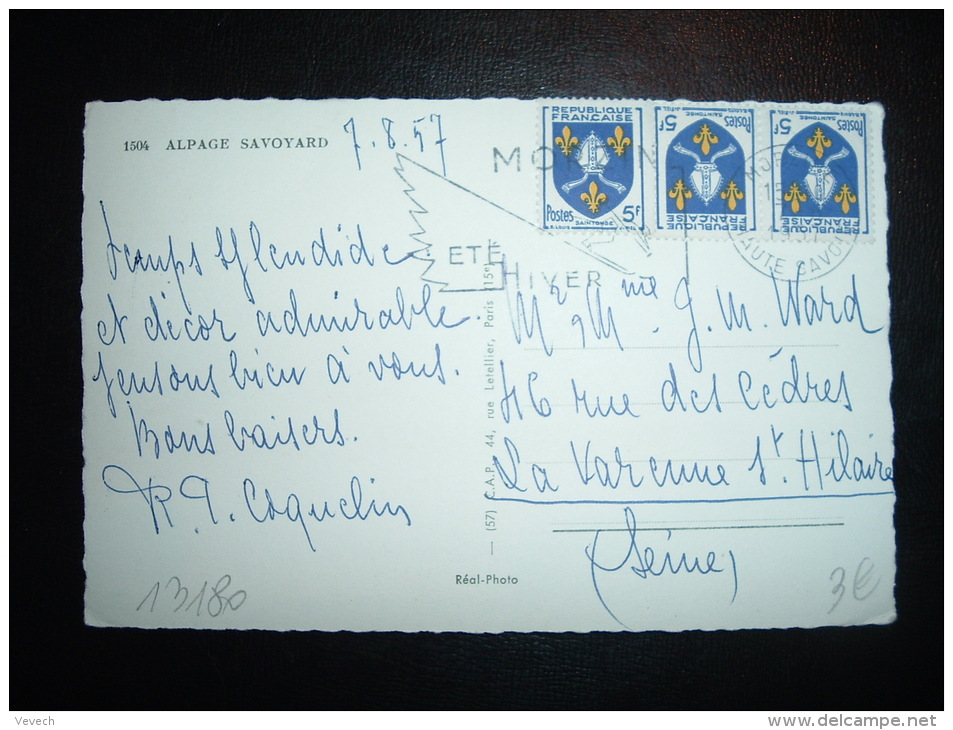 1504 ALPAGE SAVOYARD
7.8.57
Temps splendide
et décor admirable.
Pensons bien à vous.
Bons baisers.
R. P. Coquelin
13180
REPUBLIQUE
FRANÇAISE
Postes 5F
SAINTONGE
Postes 5F
SAINTONGE
REPUBLIQUE
FRANÇAISE
Postes 5F
SAINTONGE
REPUBLIQUE
FRANÇAISE
ETE
HIVER
HAUTE SAVOIE
Mr & Mme J. M. Ward
46 rue des Cèdres
La Varenne St Hilaire
(Seine)
(57) C.A.P. 44, rue Letellier, Paris (15e)
Réal-Photo
3€
Vevech
www.delcampe.net